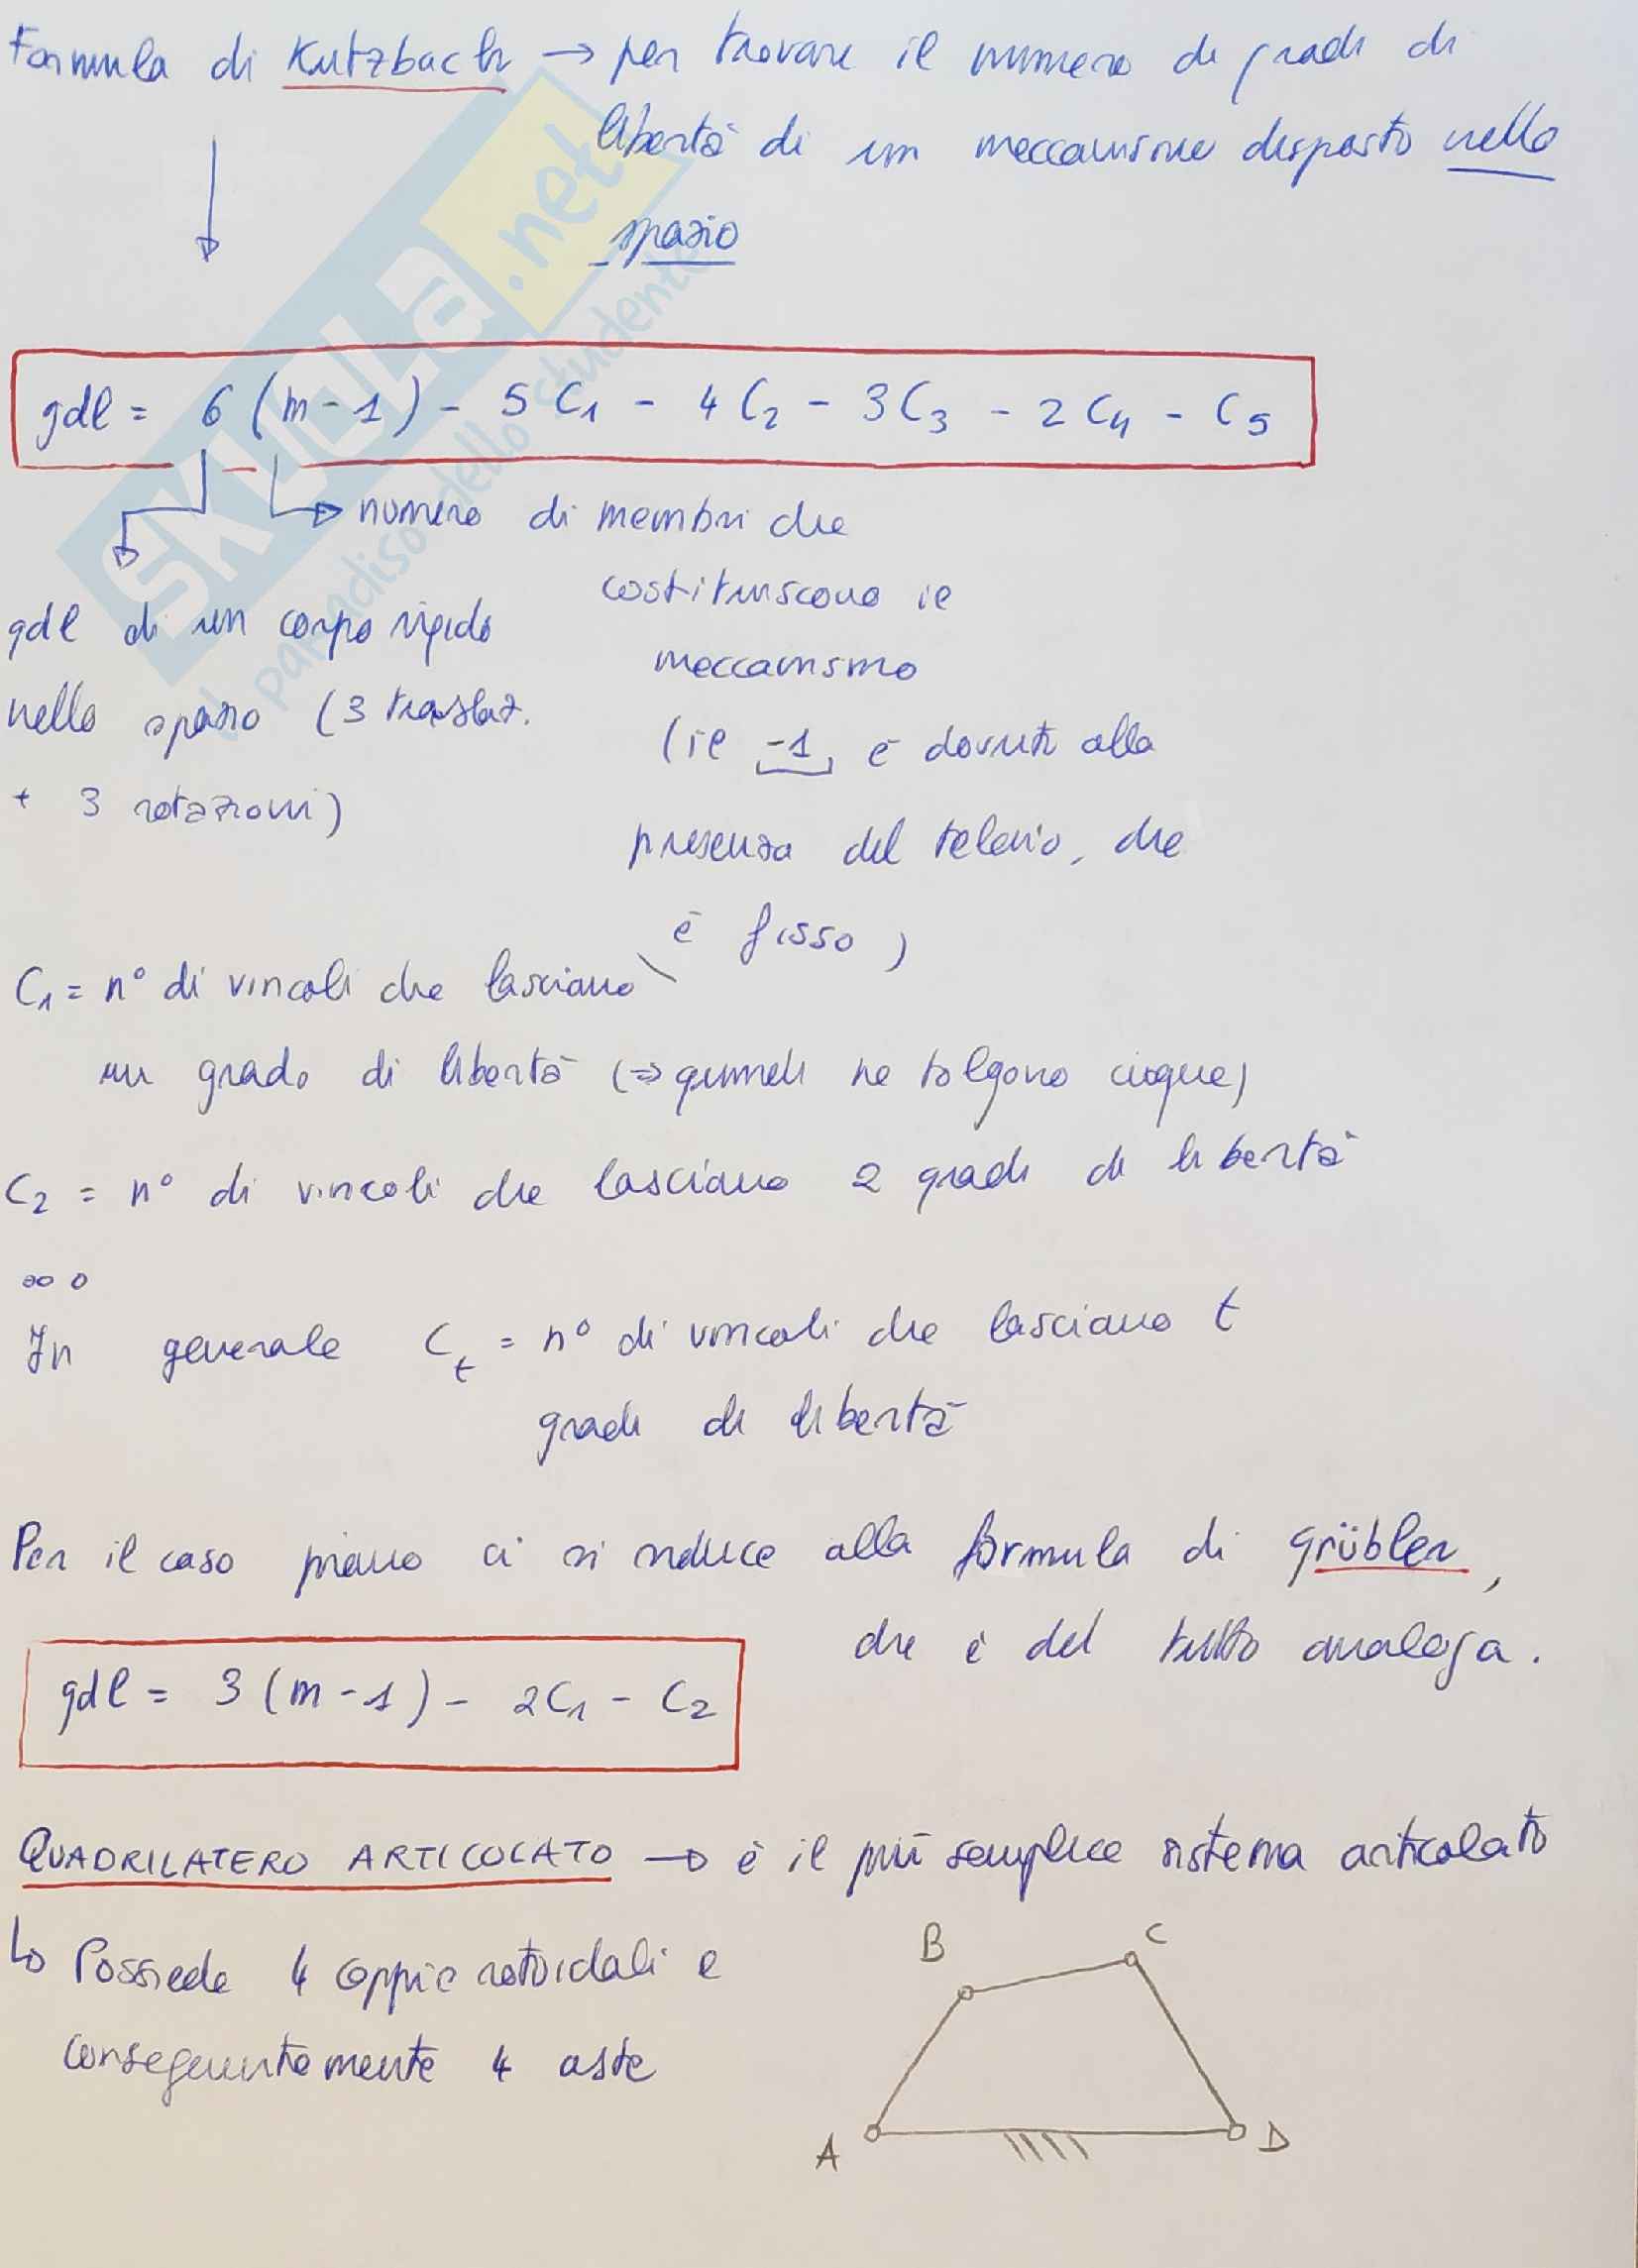 Formula di Kutzbach → per trovare il numero di gradi di
libertà di un meccanismo disposto nello
spazio
gdl = 6 (m-1) - 5 C₁ - 4 C₂ - 3 C₃ - 2 C₄ - C₅
numero di membri che
costituiscono il
meccanismo
(il -1 è dovuto alla
presenza del telaio, che
è fisso)
gdl di un corpo rigido
nello spazio (3 traslaz.
+ 3 rotazioni)
C₁ = n° di vincoli che lasciano
un grado di libertà (⇒ quindi ne tolgono cinque)
C₂ = n° di vincoli che lasciano 2 gradi di libertà
In generale Cₜ = n° di vincoli che lasciano t
gradi di libertà
Per il caso piano ci si riduce alla formula di Grübler,
che è del tutto analoga.
gdl = 3 (m-1) - 2C₁ - C₂
QUADRILATERO ARTICOLATO → è il più semplice sistema articolato
↳ Possiede 4 coppie rotoidali e
conseguentemente 4 aste
B
C
A
D
SKUOLA.net
il paradiso dello studente